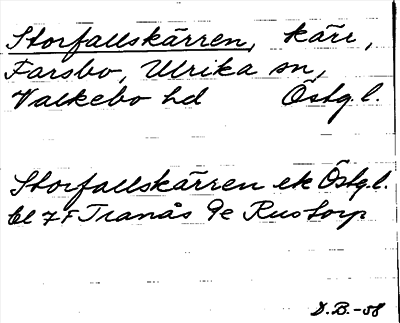 Storfallskärren, kärr,
Farsbo, Ulrika sn,
Valkebo hd Östg.l.
Storfallskärren ek Östg.l.
bl 7F Tranås 9e Rustorp
D.B.-58